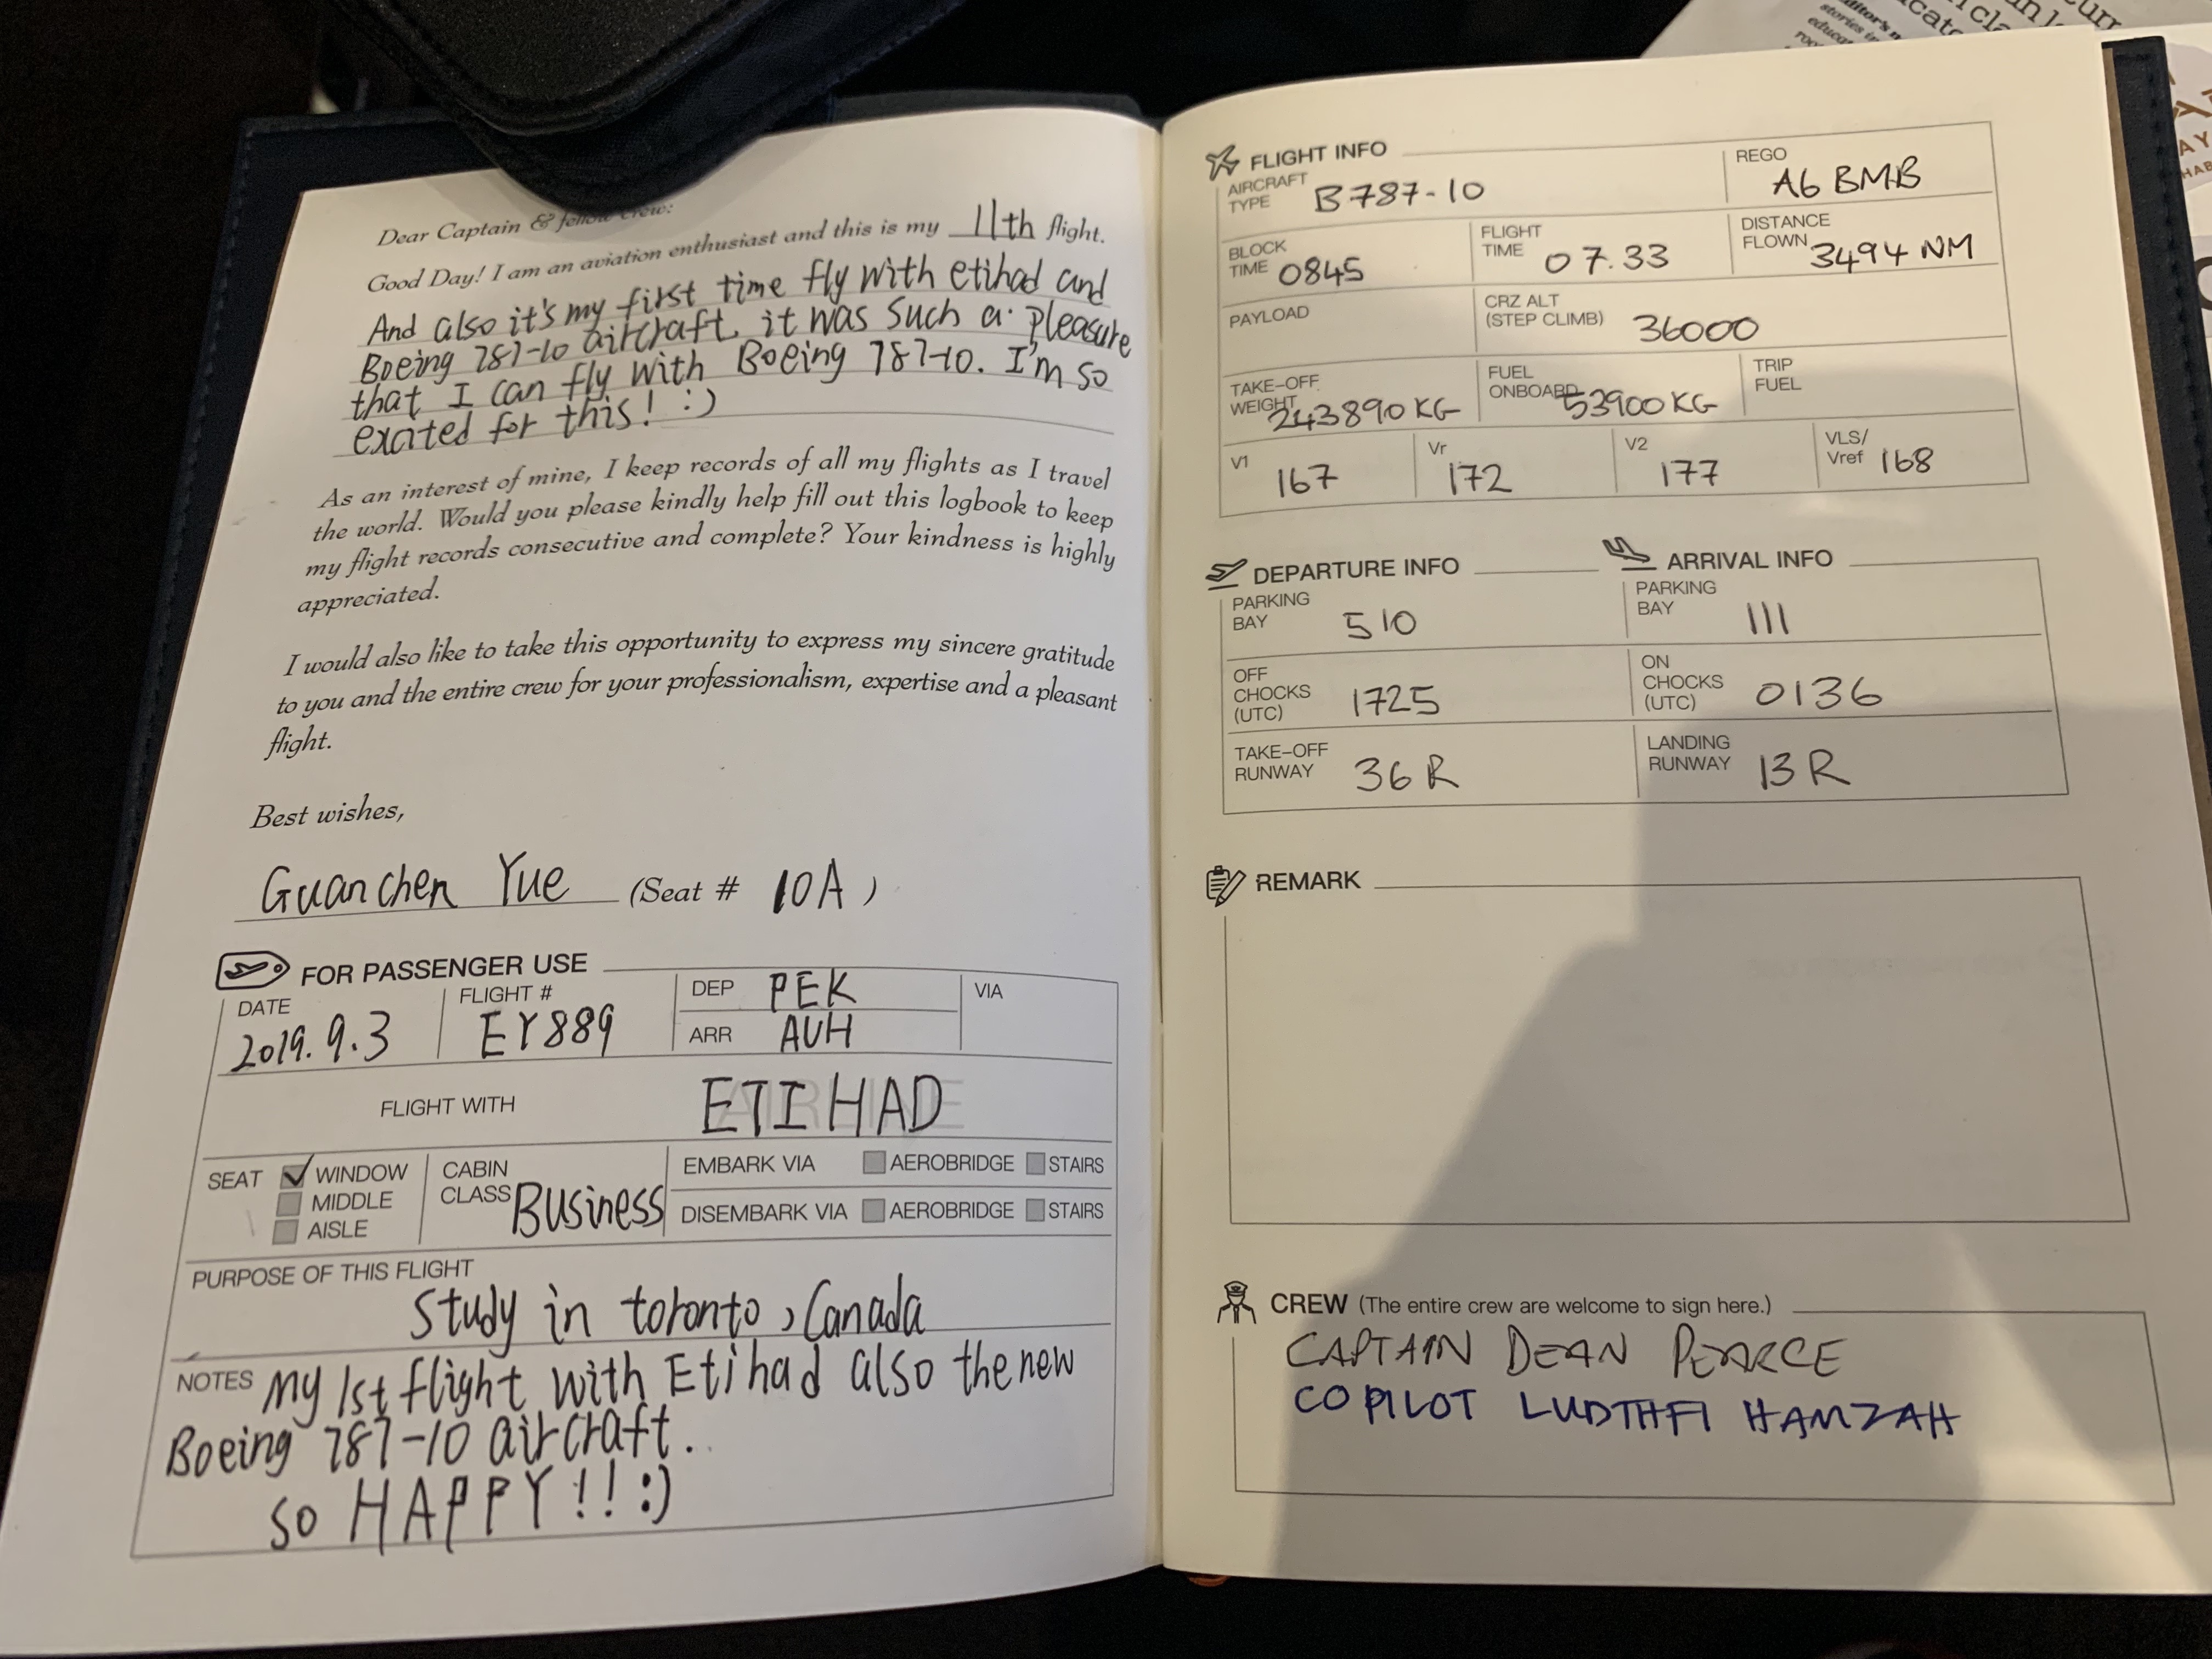 Dear Captain & fellow crew:
Good Day! I am an aviation enthusiast and this is my 11th flight.
And also it's my first time fly with etihad and
Boeing 787-10 aircraft. it was such a pleasure
that I can fly with Boeing 787-10. I'm so
excited for this! :)
As an interest of mine, I keep records of all my flights as I travel
the world. Would you please kindly help fill out this logbook to keep
my flight records consecutive and complete? Your kindness is highly
appreciated.
I would also like to take this opportunity to express my sincere gratitude
to you and the entire crew for your professionalism, expertise and a pleasant
flight.
Best wishes,
Guanchen Yue (Seat # 10A )
FOR PASSENGER USE
DATE 2019.9.3 FLIGHT # EY889 DEP PEK VIA
ARR AUH
FLIGHT WITH AIRLINE ETIHAD
SEAT WINDOW CABIN CLASS Business EMBARK VIA AEROBRIDGE STAIRS
MIDDLE
AISLE DISEMBARK VIA AEROBRIDGE STAIRS
PURPOSE OF THIS FLIGHT
Study in toronto, Canada
NOTES My 1st flight with Etihad also the new
Boeing 787-10 aircraft.
so HAPPY!!:)
FLIGHT INFO
AIRCRAFT TYPE B787-10 REGO A6 BMB
BLOCK TIME 0845 FLIGHT TIME 07.33 DISTANCE FLOWN 3494 NM
PAYLOAD CRZ ALT (STEP CLIMB) 36000
TAKE-OFF WEIGHT 243890 KG FUEL ONBOARD 53900 KG TRIP FUEL
V1 167 Vr 172 V2 177 VLS/ Vref 168
DEPARTURE INFO ARRIVAL INFO
PARKING BAY 510 PARKING BAY 111
OFF CHOCKS (UTC) 1725 ON CHOCKS (UTC) 0136
TAKE-OFF RUNWAY 36R LANDING RUNWAY 13R
REMARK
CREW (The entire crew are welcome to sign here.)
CAPTAIN DEAN PEARCE
COPILOT LUDTHFI HAMZAH